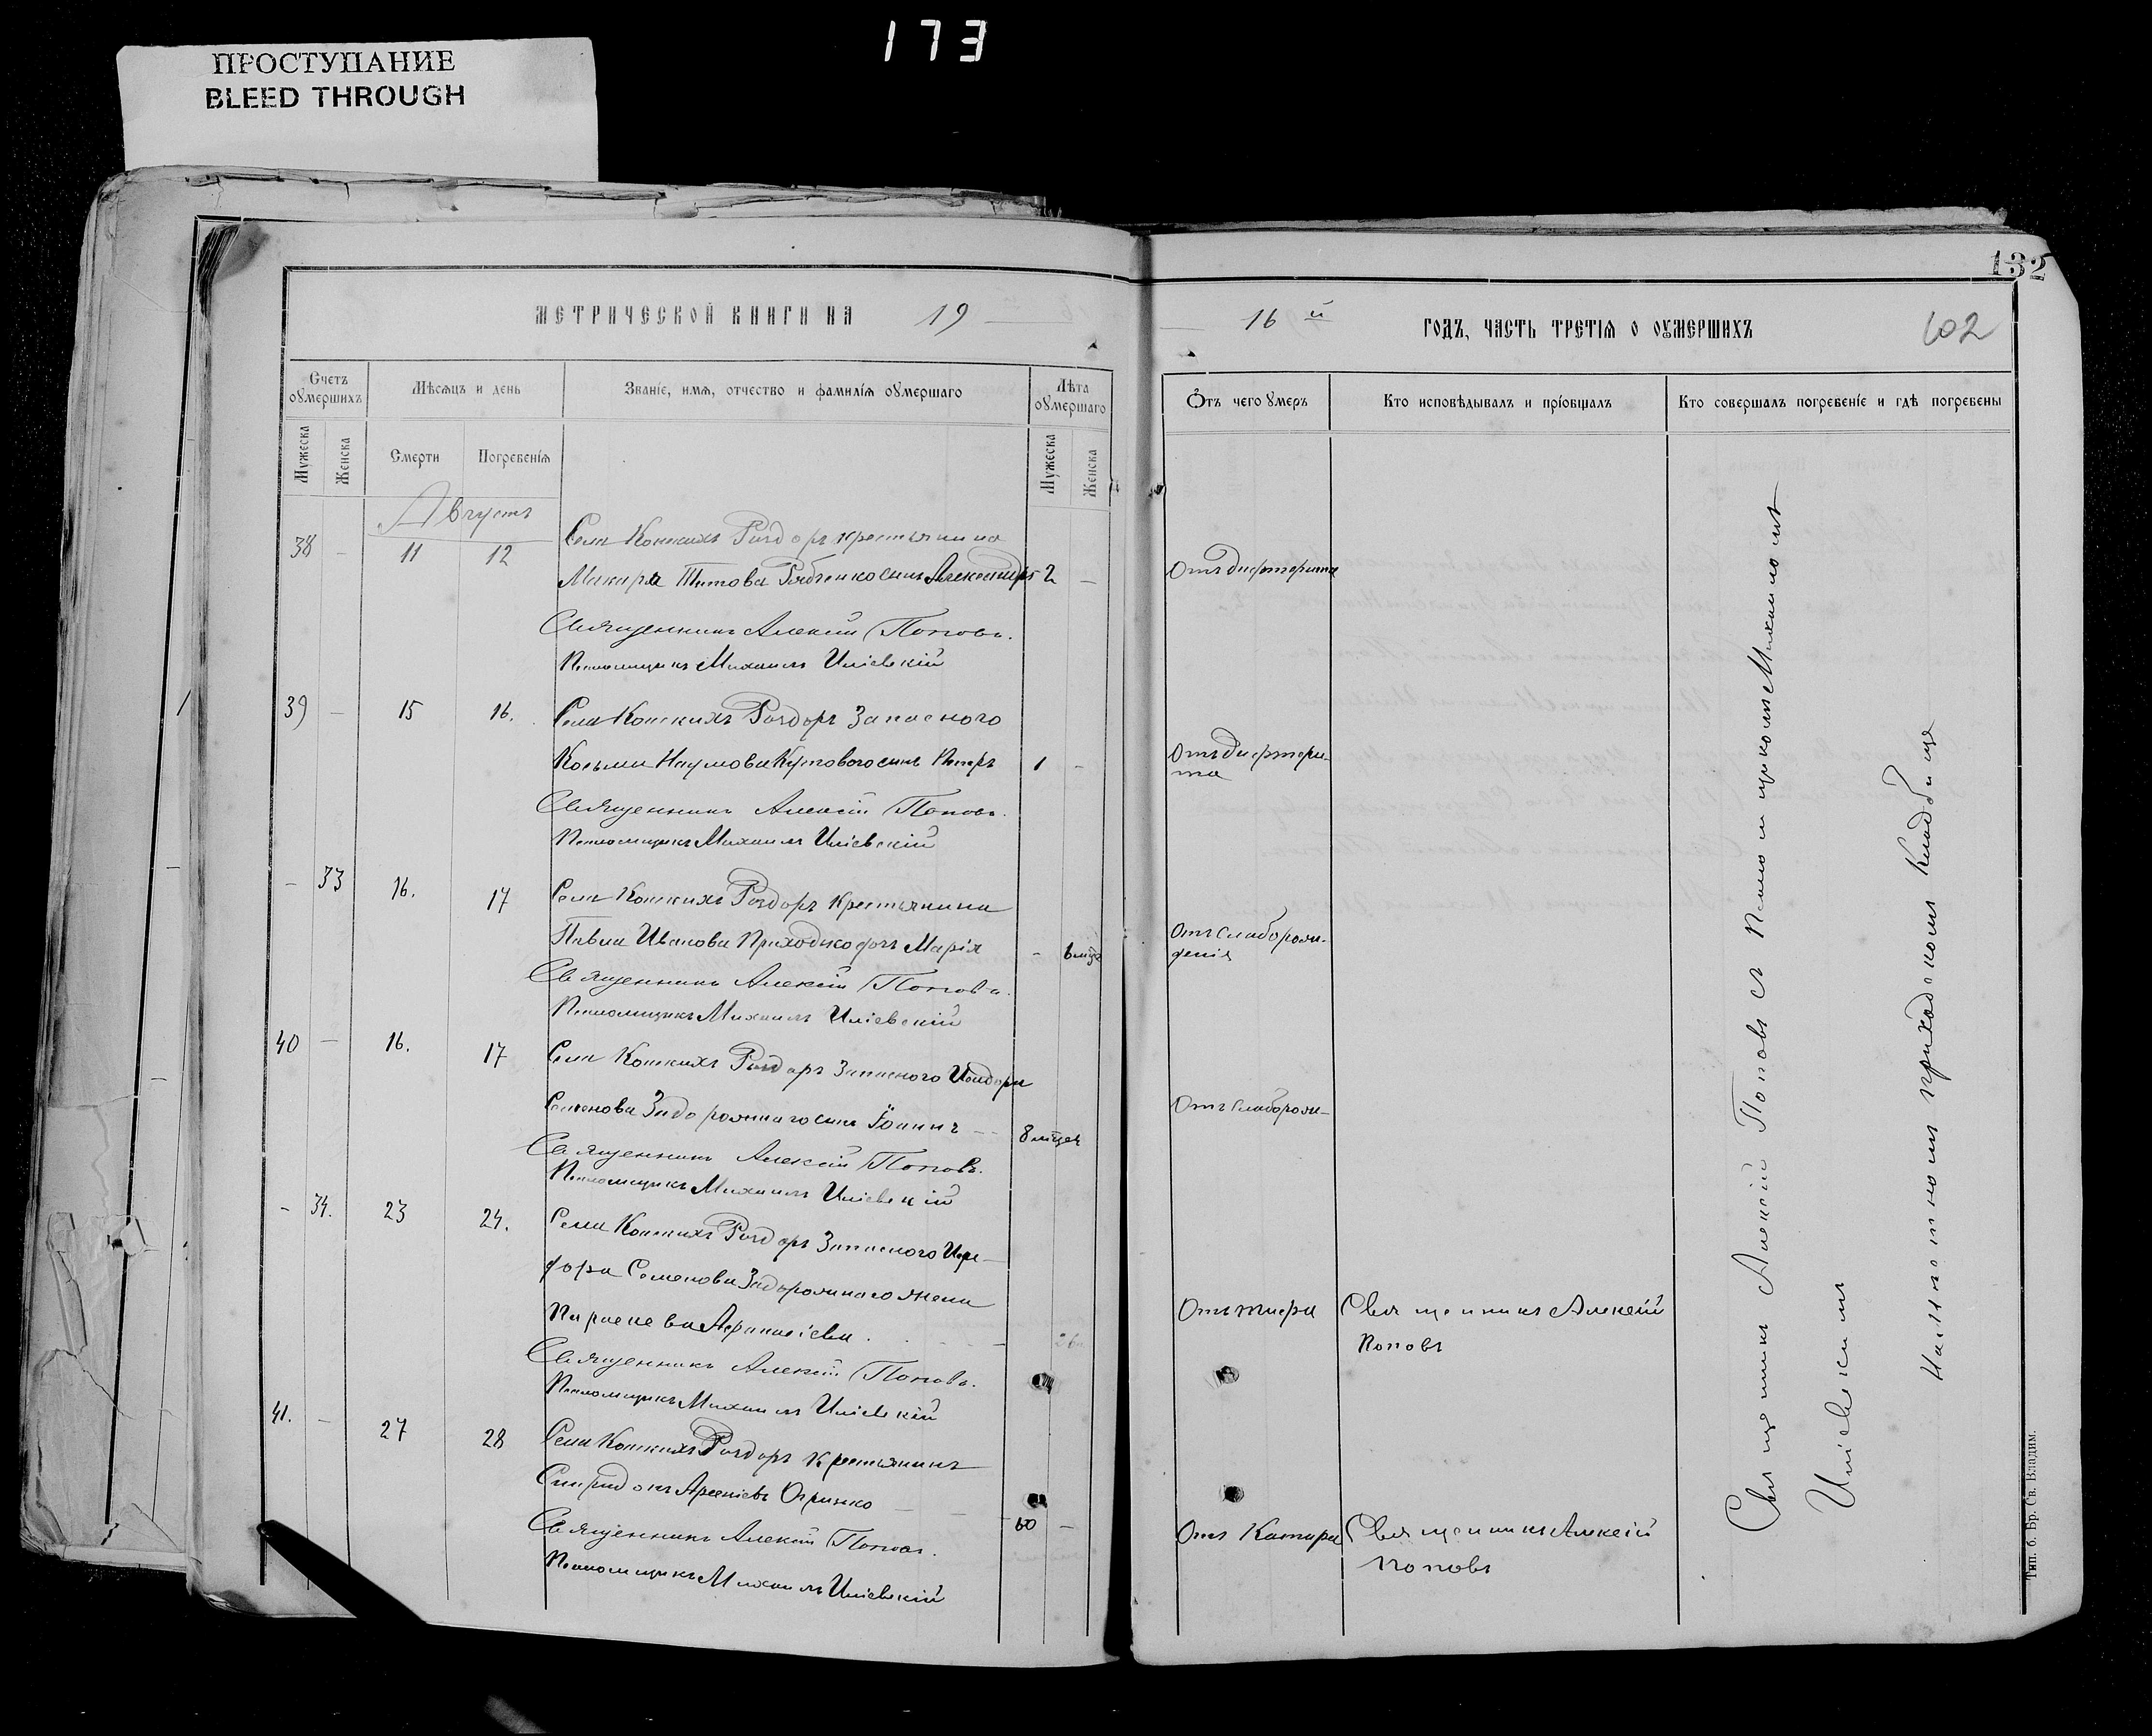 173
ПРОСТУПАНИЕ
BLEED THROUGH
132
МЕТРИЧЕСКОЙ КНИГИ НА 19
16й ГОДЪ, ЧАСТЬ ТРЕТІѦ О ОУМЕРШИХЪ
102
Счетъ оумершихъ
Мѣсѧцъ и день
Званіе, имѧ, отчество и фамиліѧ оумершаго
Лѣта оумершаго
Отъ чего умеръ
Кто исповѣдывалъ и пріобщалъ
Кто совершалъ погребеніе и гдѣ погребены
Мужеска
Женска
Смерти
Погребеніѧ
Мужеска
Женска
Августъ
38 - 11 12 Села Конскихъ Роздоръ крестьянина
Макара Титова Рябченко сынъ Александръ 2 - Отъ дифтерита
Священникъ Алексій Поповъ.
Псаломщикъ Михаилъ Иліевскій
39 - 15 16. Села Конскихъ Роздоръ Запасного
Косьмы Наумова Кутового сынъ Петръ 1 - Отъ дифтери-
та
Священникъ Алексій Поповъ.
Псаломщикъ Михаилъ Иліевскій
- 33 16. 17 Села Конскихъ Роздоръ крестьянина
Павла Иванова Приходько дочь Марія - 6 мцъ Отъ слаборож-
денія
Священникъ Алексій Поповъ.
Псаломщикъ Михаилъ Иліевскій
40 - 16. 17 Села Конскихъ Роздоръ Запасного Исидора
Семенова Задорожнаго сынъ Іоаннъ - 8 мѣцев Отъ слаборож-
Священникъ Алексій Поповъ.
Псаломщикъ Михаилъ Иліевскій
- 34. 23 24. Села Конскихъ Роздоръ Запасного Иси-
дора Семенова Задорожнаго жена
Параскева Афанасіева. Отъ тифа Священникъ Алексій
Поповъ
Священникъ Алексій Поповъ.
Псаломщикъ Михаилъ Иліевскій
41. - 27 28 Села Конскихъ Роздоръ Крестьянинъ
Спиридонъ Арсеніевъ
60 - Отъ Катара Священникъ Алексій
Поповъ
Священникъ Алексій Поповъ.
Псаломщикъ Михаилъ Иліевскій
Священникъ Алексій Поповъ съ Псаломщикомъ Михаиломъ
Иліевскимъ
На мѣстномъ приходскомъ Кладбище
Тип. б. Бр. Св. Владим.